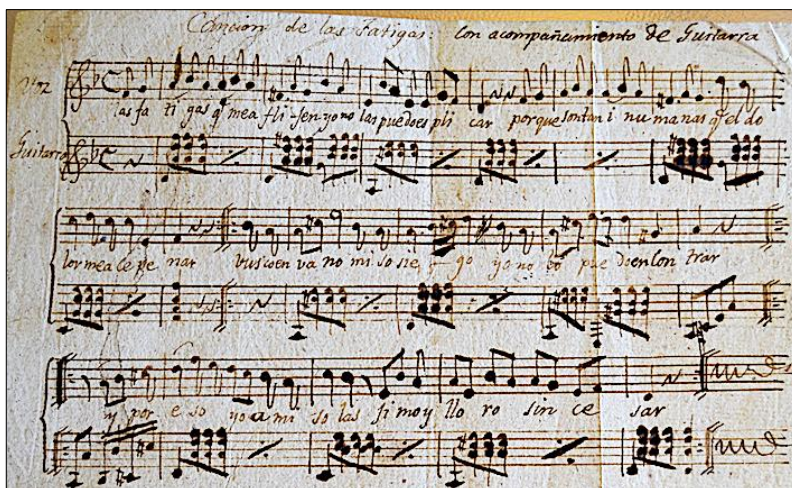 Cancion de las Fatigas: Con acompañamiento de Guitarra
Voz
las fa ti gas q.e me a fli-sen yo no las puedo es pli car porque son tan i nu ma nas q.e el do
Guitarra
lor me a ce pe nar busco en va no mi so sie go yo no lo pue do en con trar
y por e so yo a mi so las ji mo y llo ro sin ce sar